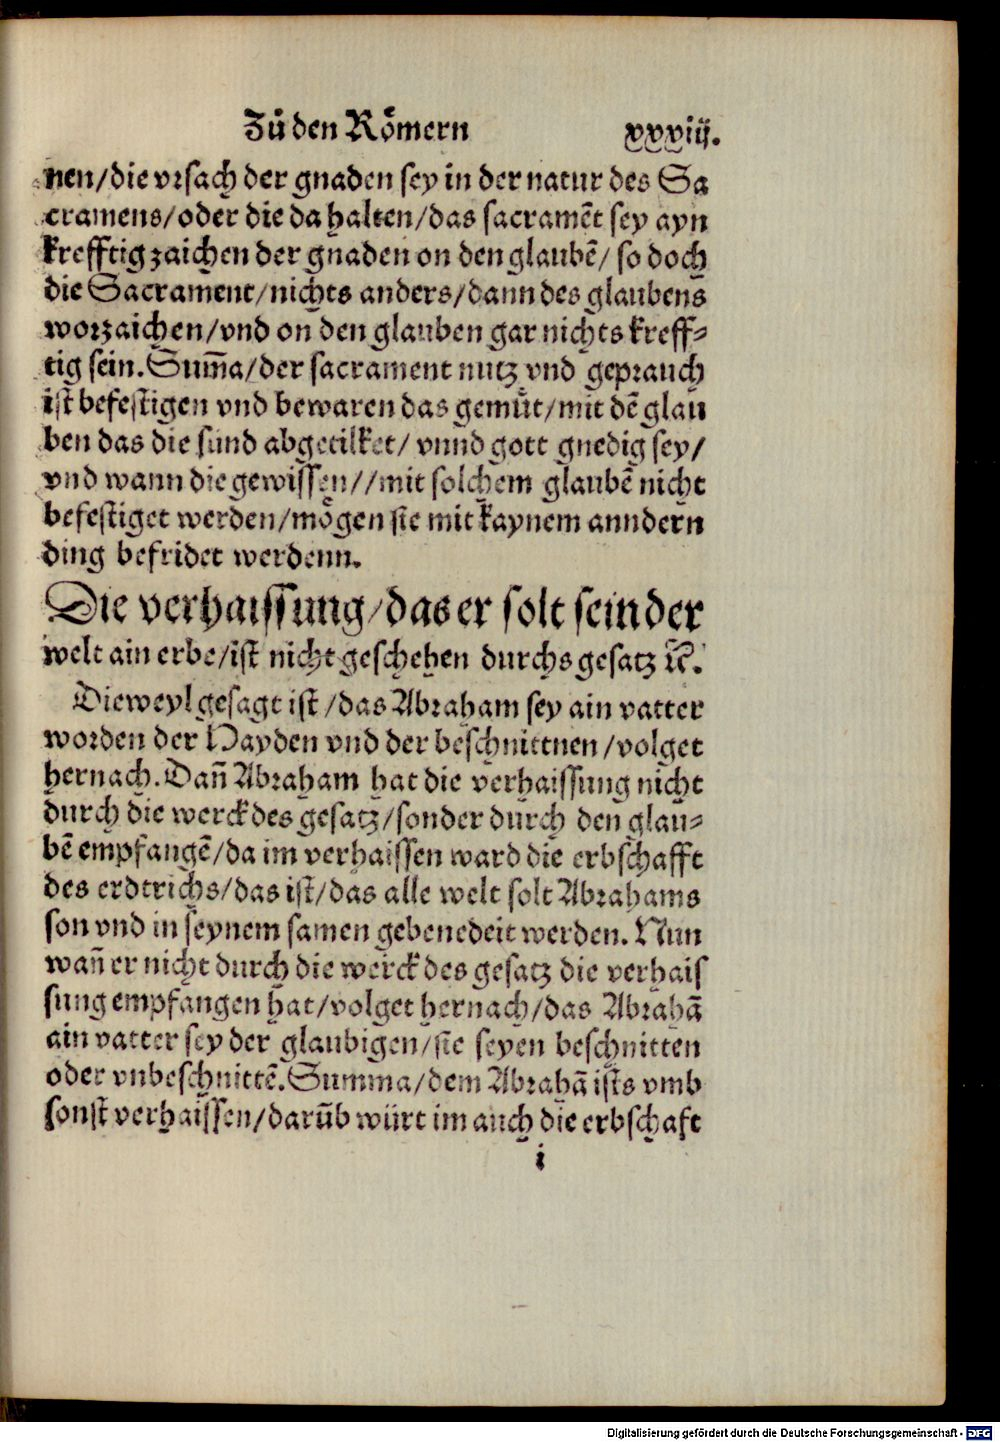 Zů den Rőmern xxxiij.
nen/die vrsach der gnaden sey in der natur des Sa
cramens/oder die da halten/das sacramēt sey ayn
krefftig zaichen der gnaden on den glaubē/ so doch
die Sacrament/nichts anders/dann des glaubens
worzaichen/vnd on den glauben gar nichts kreff⸗
tig sein. Sum̄a/der sacrament nutz vnd geprauch
ist befestigen vnd bewaren das gemůt/mit dē glau
ben das die sünd abgetilket/ vnnd gott gnedig sey/
vnd wann die gewissen//mit solchem glaubē nicht
befestiget werden/moͤgen sie mit kaynem anndern
ding befridet werdenn.
Die verhaissung/das er solt sein der
welt ain erbe/ist nicht geschehen durchs gesatz ꝛc̄.
Dieweyl gesagt ist/das Abraham sey ain vatter
worden der Hayden vnd der beschnittnen/volget
hernach. Dan̄ Abraham hat die verhaissung nicht
durch die werck des gesatz/sonder durch den glau⸗
bē empfangē/da im verhaissen ward die erbschafft
des erdtrichs/das ist/das alle welt solt Abrahams
son vnd in seynem samen gebenedeit werden. Nun
wan̄ er nicht durch die werck des gesatz die verhais
sung empfangen hat/volget hernach/das Abrahā
ain vatter sey der glaubigen/sie seyen beschnitten
oder vnbeschnittē. Summa/dem Abrahā ists vmb
sonst verhaissen/darūb würt im auch die erbschaft
i
Digitalisierung gefördert durch die Deutsche Forschungsgemeinschaft - DFG